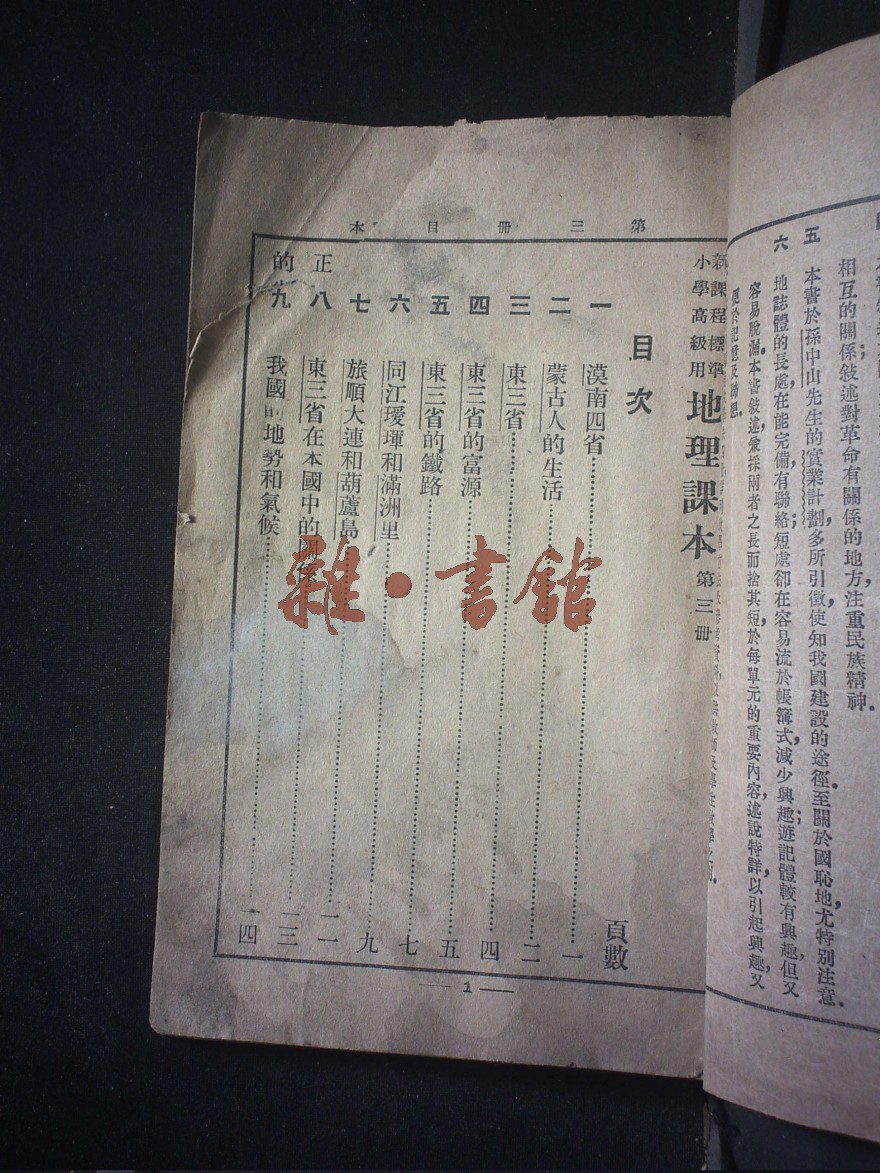 相互的關係敍述對革命有關係的地方注重民族精神.
五 本書於孫中山先生的實業計劃多所引徵使知我國建設的途徑.至關於國恥地尤特別注意.
六 地誌體的長處,在能完備,有聯絡;短處卻在容易流於帳簿式,減少興趣;遊記體較有興趣,但又
容易脫漏.本書敍述,兼採兩者之長而捨其短;於每單元的重要內容述說特詳,以引起興趣,又
便於記憶及聯想.
第三册目
本
新課程標準
小學高級用
地理課本 第三册
目次
頁數
一 漠南四省 一
二 蒙古人的生活 二
三 東三省 四
四 東三省的富源 五
五 東三省的鐵路 七
六 同江璦琿和滿洲里 九
七 旅順大連和葫蘆島 一一
八 東三省在本國中的 一三
九 我國的地勢和氣候 一四
正
的
1
雜·書館